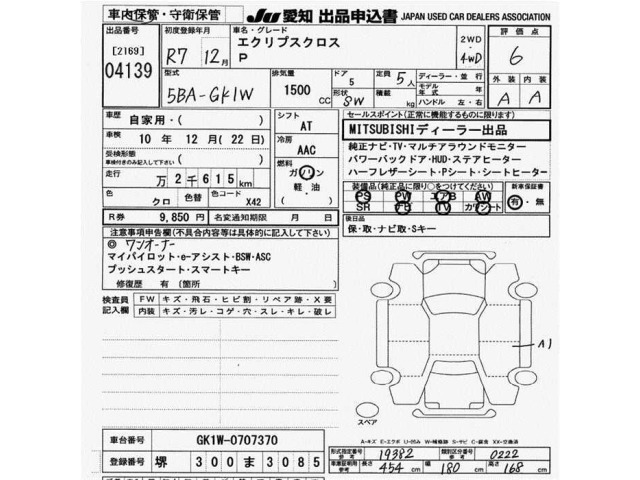 車内保管・守衛保管
JU 愛知 出品申込書 JAPAN USED CAR DEALERS ASSOCIATION
出品番号
[2169]
04139
初度登録年月
R7 12月
車名・グレード
エクリプスクロス
P
2WD
4WD
評価点
6
型式
5BA-GK1W
排気量
1500cc
ドア
5
形状
SW
定員
5人
積載
kg
ディーラー・並行
モデル年式
年
ハンドル 左・右
外装 内装
A A
車歴
自家用・( )
車検
10年 12月(22日)
受検形態
車検付きのみ記入して下さい
( )
走行
万 2千 615 km
色
クロ
色替
色コード
X42
R券
9,850円
名変通知期限 月 日
シフト
AT
冷房
AAC
燃料
ガソリン
軽・油
( )
セールスポイント(正常に機能するものに限ります)
MITSUBISHIディーラー出品
純正ナビ・TV・マルチアラウンドモニター
パワーバックドア・HUD・ステアヒーター
ハーフレザーシート・Pシート・シートヒーター
装備品(純正品に限り○をつけてください)
PS PW エアB AW
SR TV カワシート
新車保証書
有・無
後日品
保・取・ナビ取・Sキー
注意事項申告欄(不具合内容等は具体的に記入して下さい)
◎ ワンオーナー
マイパイロット・e-アシスト・BSW・ASC
プッシュスタート・スマートキー
修復歴 有(箇所 )
検査員
記入欄
FW キズ・飛石・ヒビ割・リペア跡・X要
内装 キズ・汚レ・コゲ・穴・スレ・キレ・破レ
A1
スペア
A-キズ E-エクボ U-凹み W-補修跡 S-サビ C-腐食 XX-交換済
車台番号
GK1W-0707370
登録番号
堺 300 ま 3085
形式指定番号
参考
19382
類別区分番号
参考
0222
車庫証明用
参考
長さ 454cm 幅 180cm 高さ 168cm